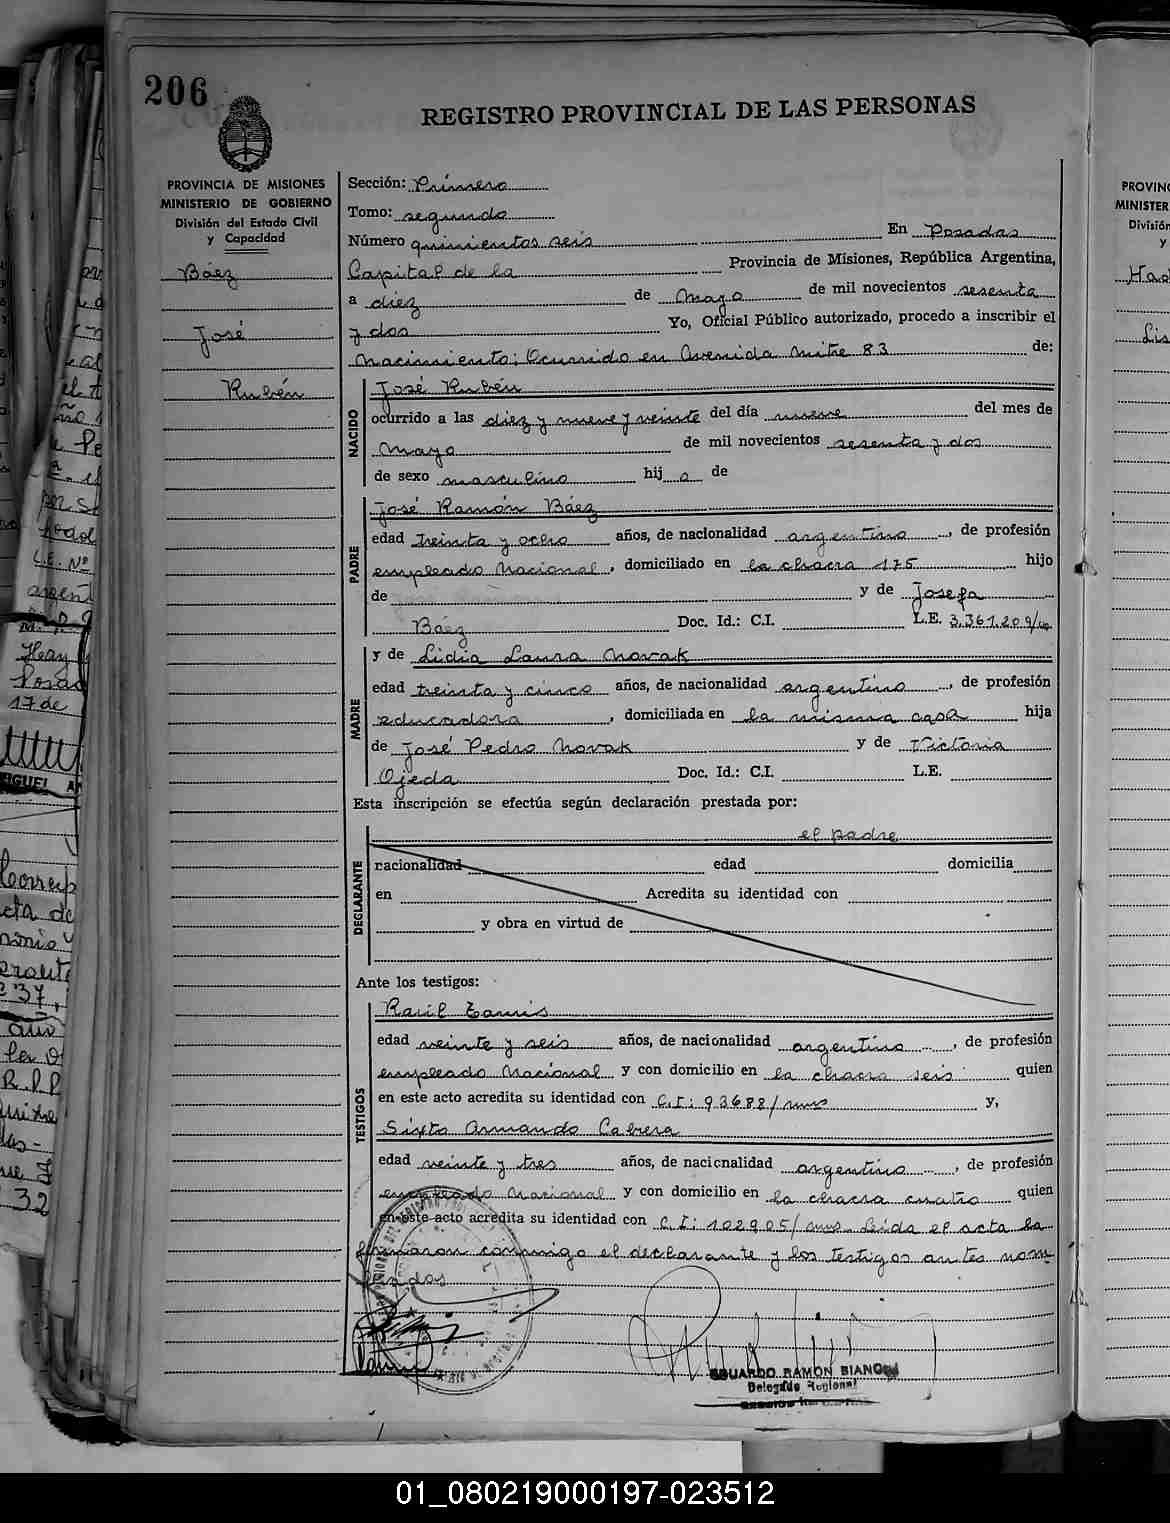 206
REGISTRO PROVINCIAL DE LAS PERSONAS
PROVINCIA DE MISIONES
MINISTERIO DE GOBIERNO
División del Estado Civil
y Capacidad
Báez
José
Rubén
Sección: Primero
Tomo: segundo
Número quinientos seis En Posadas
Capital de la Provincia de Misiones, República Argentina,
a diez de Mayo de mil novecientos sesenta
y dos Yo, Oficial Público autorizado, procedo a inscribir el
Nacimiento: Ocurrido en Avenida Mitre 83 de:
NACIDO
José Rubén
ocurrido a las diez y nueve y veinte del día nueve del mes de
Mayo de mil novecientos sesenta y dos
de sexo masculino hij o de
PADRE
José Ramón Báez
edad treinta y ocho años, de nacionalidad argentino, de profesión
empleado Nacional, domiciliado en la chacra 175 hijo
de y de Josefa
Báez Doc. Id.: C.I. L.E. 3.361.209/
MADRE
y de Lidia Laura Novak
edad treinta y cinco años, de nacionalidad argentino, de profesión
educadora, domiciliada en la misma casa hija
de José Pedro Novak y de Victoria
Ojeda Doc. Id.: C.I. L.E.
Esta inscripción se efectúa según declaración prestada por:
DECLARANTE
el padre
nacionalidad edad domicilia
en Acredita su identidad con
y obra en virtud de
Ante los testigos:
TESTIGOS
Raúl
edad veinte y seis años, de nacionalidad argentino, de profesión
empleado Nacional y con domicilio en la chacra seis quien
en este acto acredita su identidad con C.I: 93688/mnes y,
Sixto Armando Cabrera
edad veinte y tres años, de nacionalidad argentino, de profesión
empleado Nacional y con domicilio en la chacra cuatro quien
en este acto acredita su identidad con C.I: 102905/mnes Leida el acta la
firmaron conmigo el declarante y los testigos antes nom
brados
EDUARDO RAMON BIANCHI
Delegado Regional
PROVINC
MINISTER
División
y
01_080219000197-023512